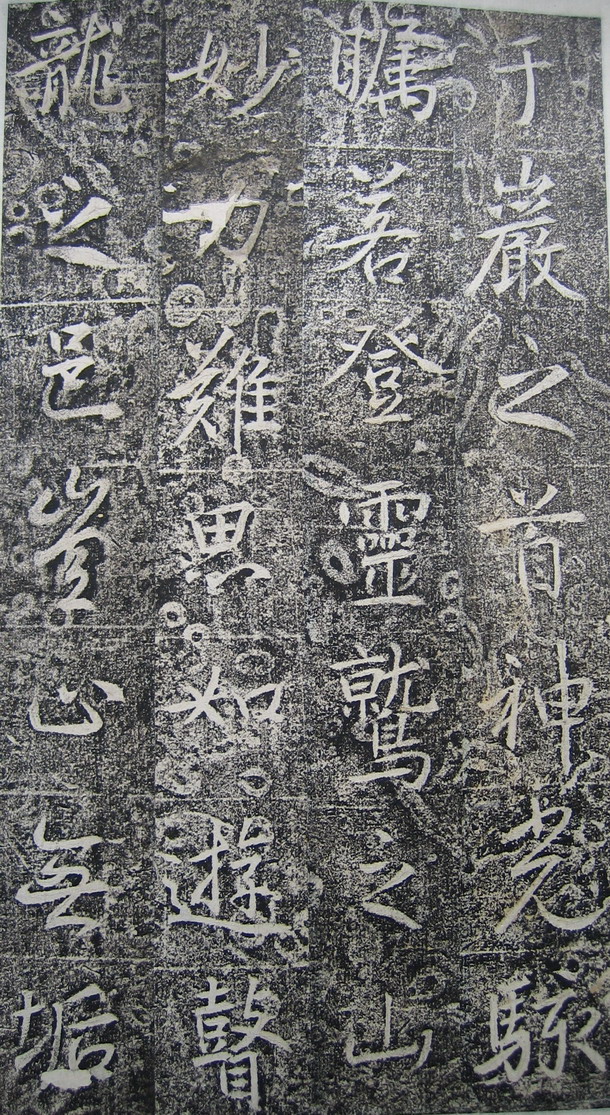 于巖之首神光驚
矚若登靈鷲之山
妙力難思如遊瞽
龍之邑豈止無垢